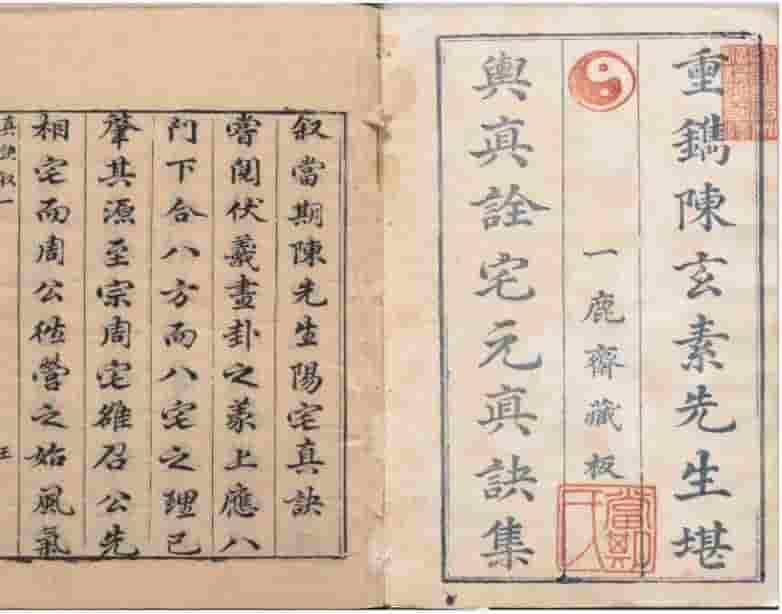 重鐫陳玄素先生堪
一鹿齋藏板
輿真詮宅元真訣集
叙當期陳先生陽宅真訣
嘗閱伏羲畫卦之義上應八
門下合八方而八宅之理已
肇其源至宗周宅雒召公先
相宅而周公徃營之始風氣
真訣叙一